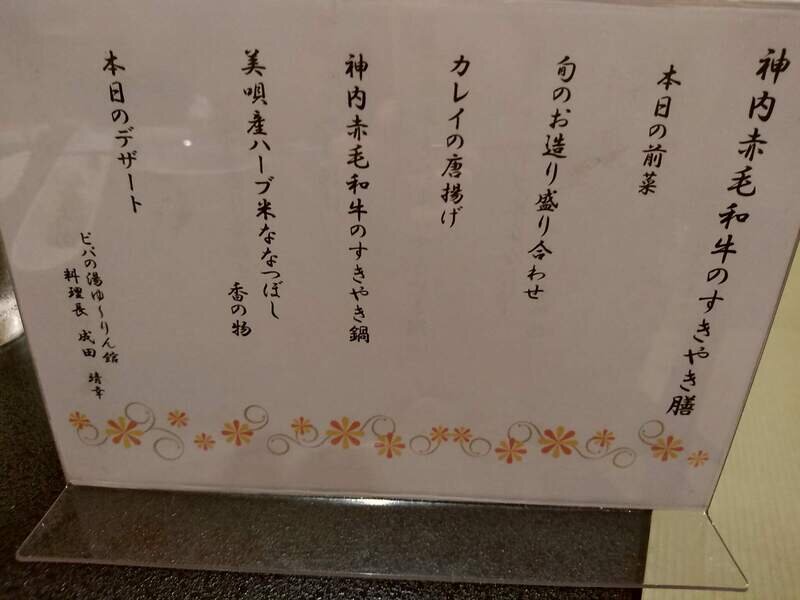 神内赤毛和牛のすきやき膳
本日の前菜
旬のお造り盛り合わせ
カレイの唐揚げ
神内赤毛和牛のすきやき鍋
美唄産ハーブ米ななつぼし
香の物
本日のデザート
ピパの湯ゆ〜りん館
料理長 成田 靖幸